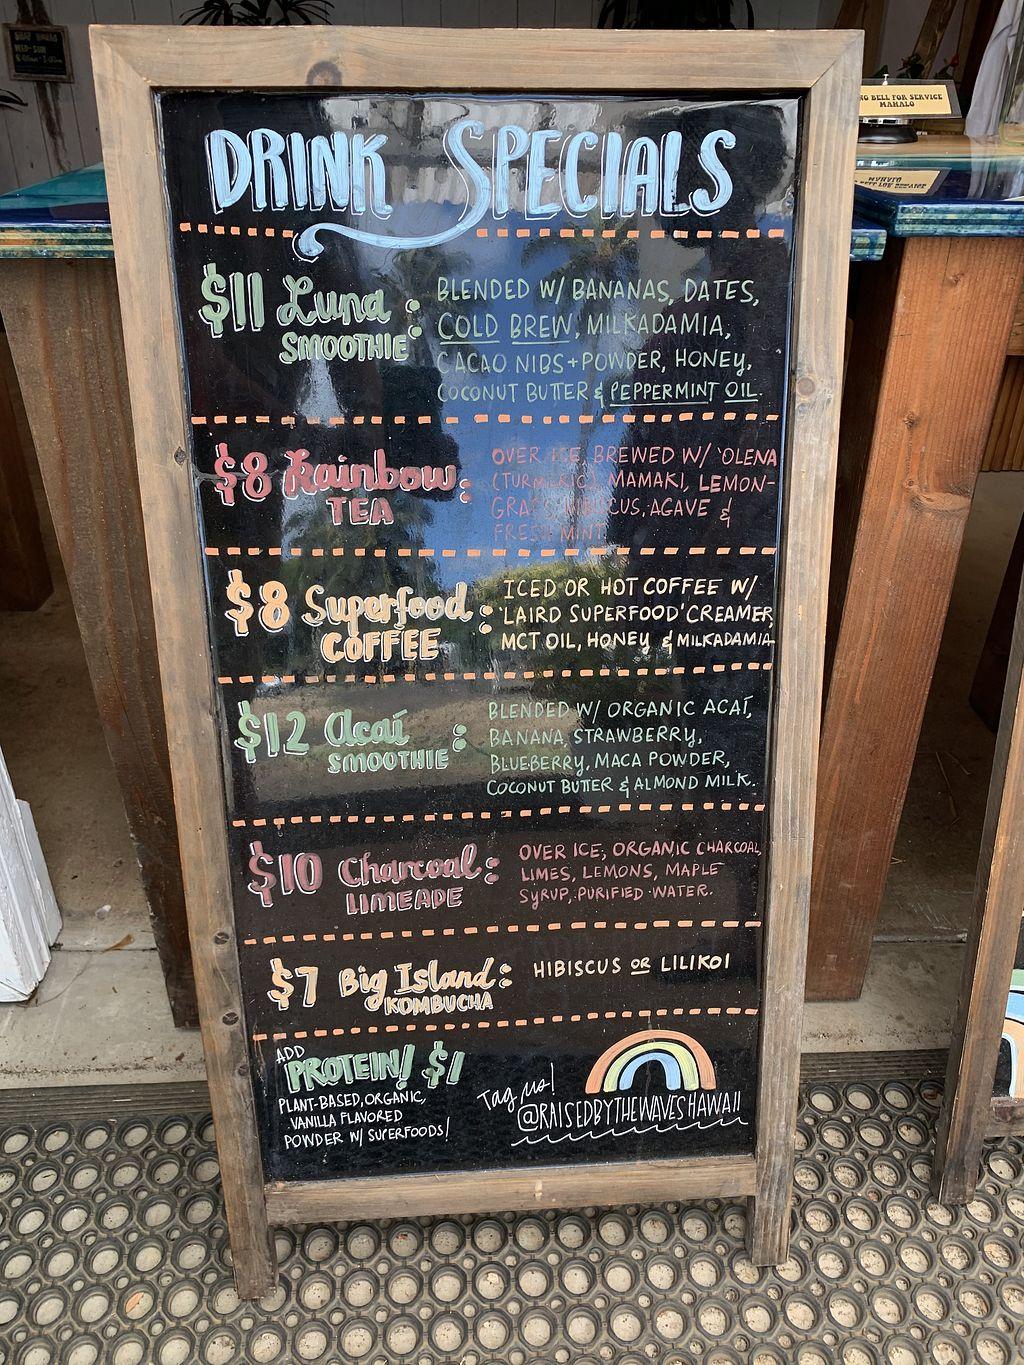 DRINK SPECIALS
$11 Luna SMOOTHIE:
BLENDED W/ BANANAS, DATES,
COLD BREW, MILKADAMIA,
CACAO NIBS + POWDER, HONEY,
COCONUT BUTTER & PEPPERMINT OIL.
$8 Rainbow TEA:
OVER ICE, BREWED W/ 'OLENA
(TURMERIC), MAMAKI, LEMON-
GRASS, HIBISCUS, AGAVE &
FRESH MINT
$8 Superfood COFFEE:
ICED OR HOT COFFEE W/
'LAIRD SUPERFOOD' CREAMER,
MCT OIL, HONEY & MILKADAMIA
$12 Acaí SMOOTHIE:
BLENDED W/ ORGANIC ACAÍ,
BANANA, STRAWBERRY,
BLUEBERRY, MACA POWDER,
COCONUT BUTTER & ALMOND MILK.
$10 Charcoal LIMEADE:
OVER ICE, ORGANIC CHARCOAL,
LIMES, LEMONS, MAPLE
SYRUP, PURIFIED WATER.
$7 Big Island KOMBUCHA:
HIBISCUS OR LILIKOI
ADD
PROTEIN! $1
PLANT-BASED, ORGANIC,
VANILLA FLAVORED
POWDER W/ SUPERFOODS!
Tag us!
@RAISEDBYTHEWAVESHAWAII
BELL FOR SERVICE
MAHALO
WED-SUN